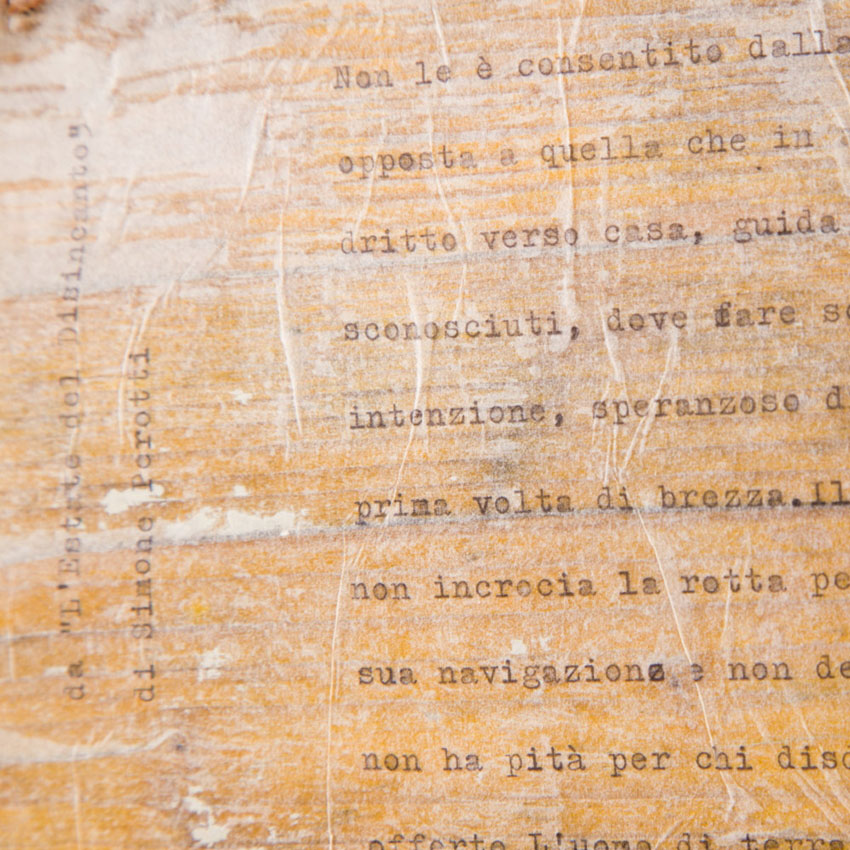 Non le è consentito dalla
opposta a quella che in
dritto verso casa, guida
sconosciuti, dove fare
intenzione, speranzoso
prima volta di brezza.Il
non incrocia la rotta
sua navigazione e non
non ha pità per chi
offerto L'uomo di terra
da "L'Estate del Disincanto"
di Simone Perotti